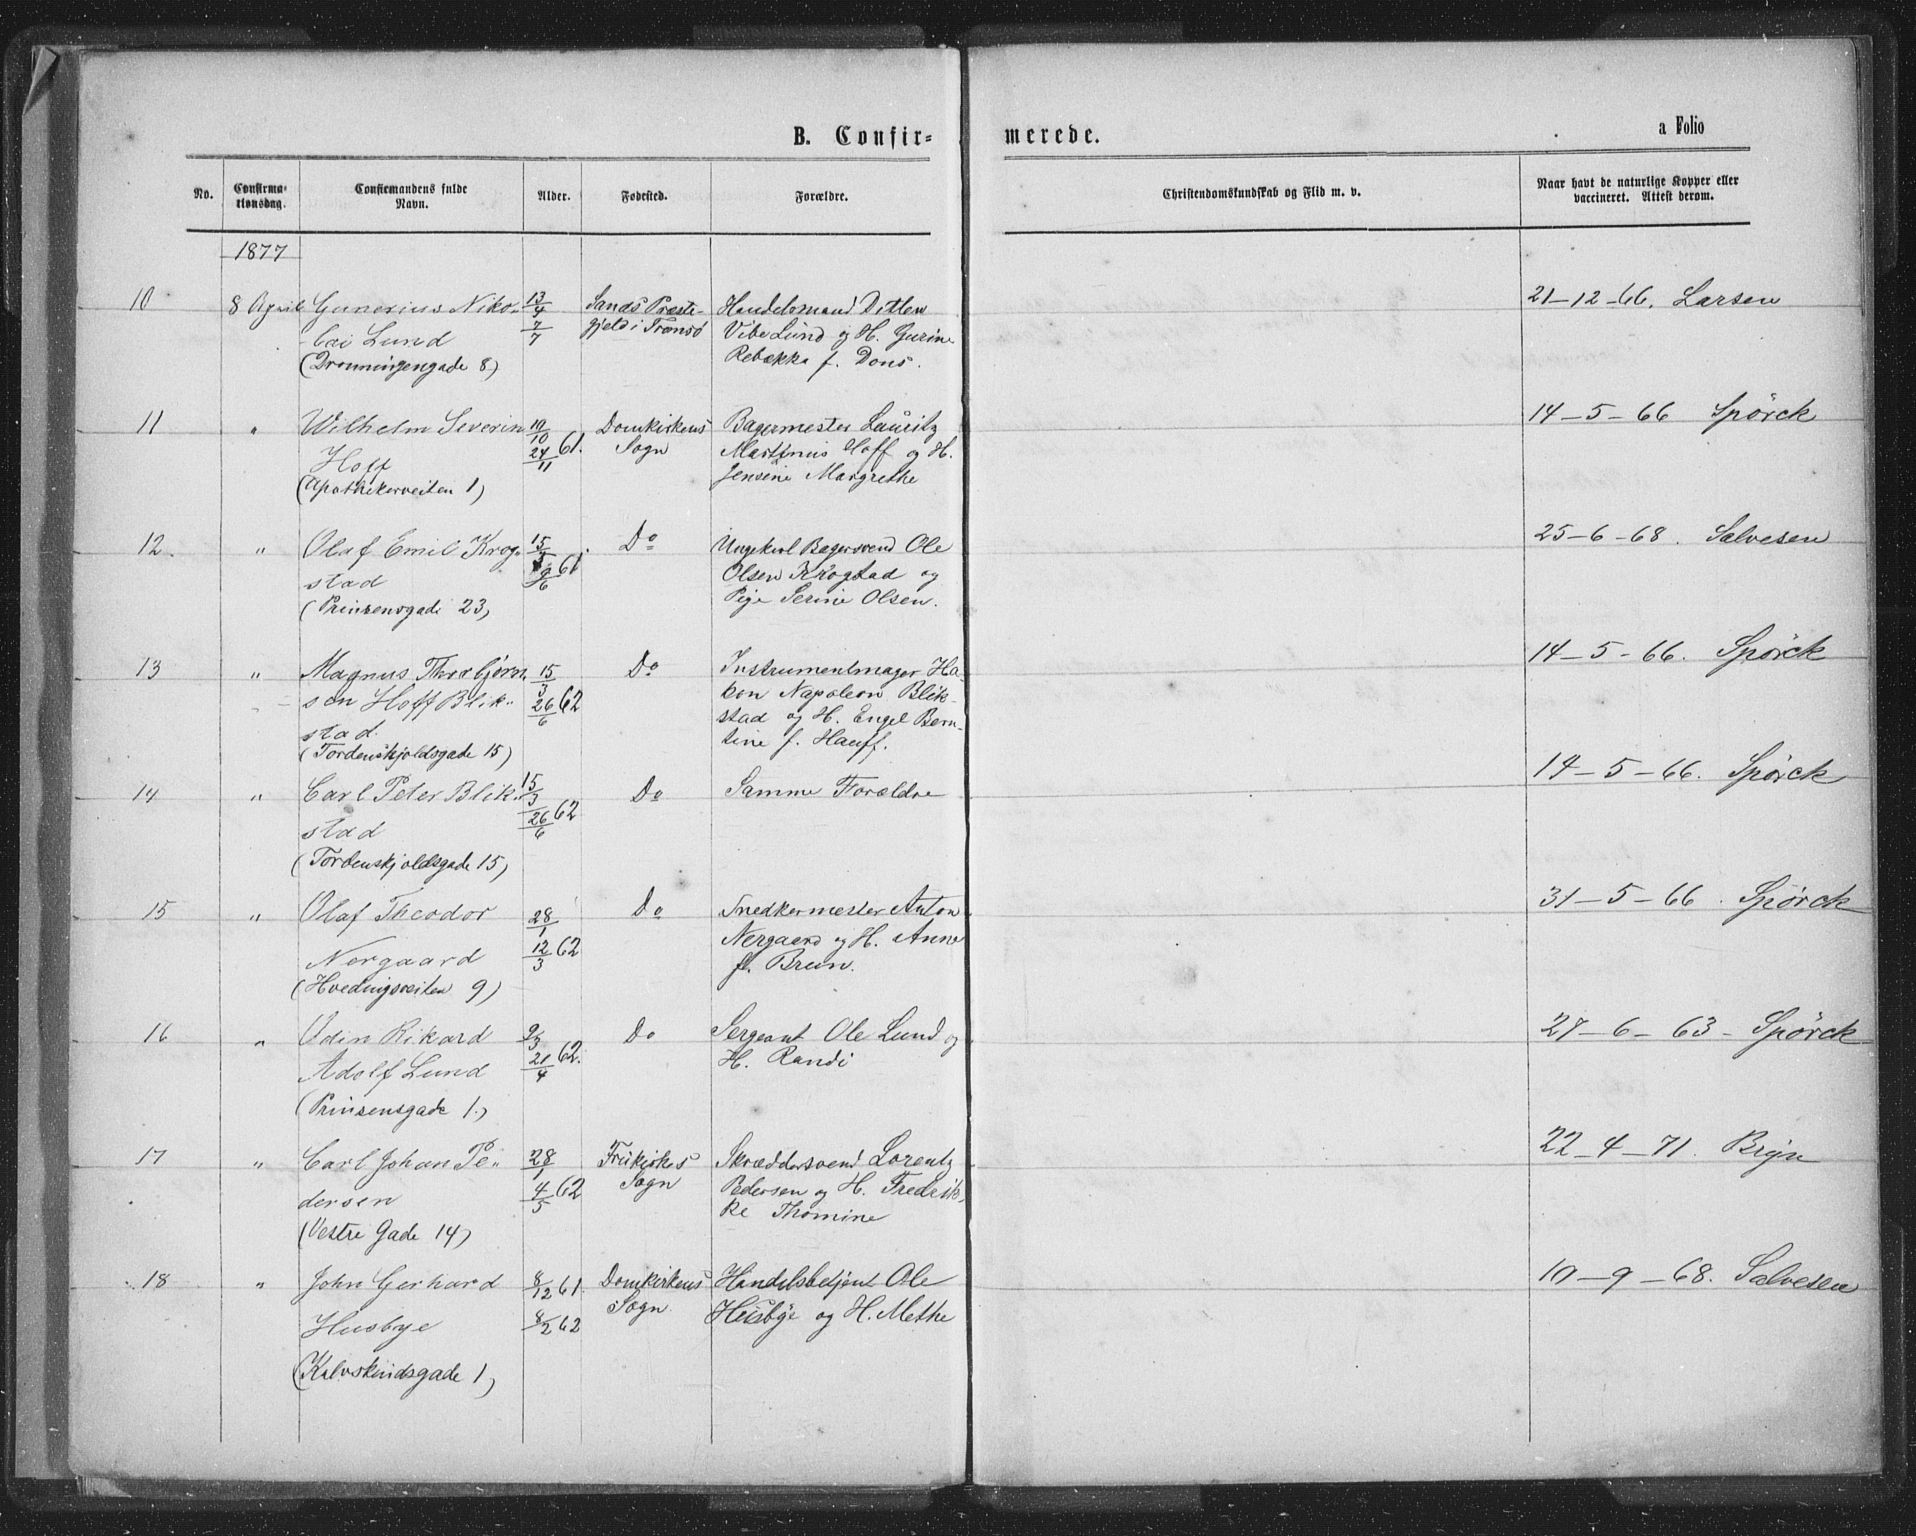 B. Confir=
merede.
a Folio
No.
Confirma-
tionsdag.
Confirmandens fulde
Navn.
Alder.
Fødested.
Forældre.
Christendomskundskab og Flid m. v.
Naar havt de naturlige Kopper eller
vaccineret. Attest derom.
1877
10 8 April Gunerius Niko- 13/4 Sands Præste- Handelsmand Ditlen 21-12-66. Larsen
lai Lund 7/7 gjeld i Tromsö Vibe Lund og H. Gurine
(Dronningengade 8) Rebækka f. Dons.
11 " Wilhelm Severin 10/10 Domkirkens Bagermester Lauritz 14-5-66 Spörck
Hoff 24/11 61. Sogn Martinus Hoff og H.
(Apothekerveiten 1) Jensine Margrethe
12. " Olaf Emil Krog- 15/3 Do Ungekarl Bagersvend Ole 25-6-68. Salvesen
stad /6 61 Olsen Krogstad og
(Prinsensgade 23) Pige Serine Olsen.
13 " Magnus Thorbjörn- 15/3 Do Instrumentmager Ha- 14-5-66. Spörck
sen Hoff Blik- 26/6 62 kon Napoleon Blik-
stad. stad og H. Engel Bern-
(Tordenskjoldsgade 15) tine f. Hauff.
14 " Carl Peter Blik- 15/3 Do Samme Forældre 14-5-66. Spörck
stad 26/6 62
(Tordenskjoldsgade 15)
15 " Olaf Theodor 28/1 Do Snedkermester Anton 31-5-66. Spörck
Nergaard 12/3 62 Nergaard og H. Anne
(Hvedingsveiten 9) f. Bruun.
16 " Odin Rikard 9/3 Do Sergeant Ole Lund og 27-6-63- Spörck
Adolf Lund 21/4 62. H. Randi
(Prinsensgade 1.)
17 " Carl Johan Pe- 28/1 Fruekirkes Skræddersvend Lorentz 22-4-71. Bryn
dersen 4/5 62 Sogn Pedersen og H. Fredrik-
(Vestre Gade 14) ke Thomine
18 " John Gerhard 8/12 61. Domkirkens Handelsbetjent Ole 10-9-68. Salvesen
Husbye 8/2 62 Sogn Husbye og H. Methe
(Kalvskindsgade 1)